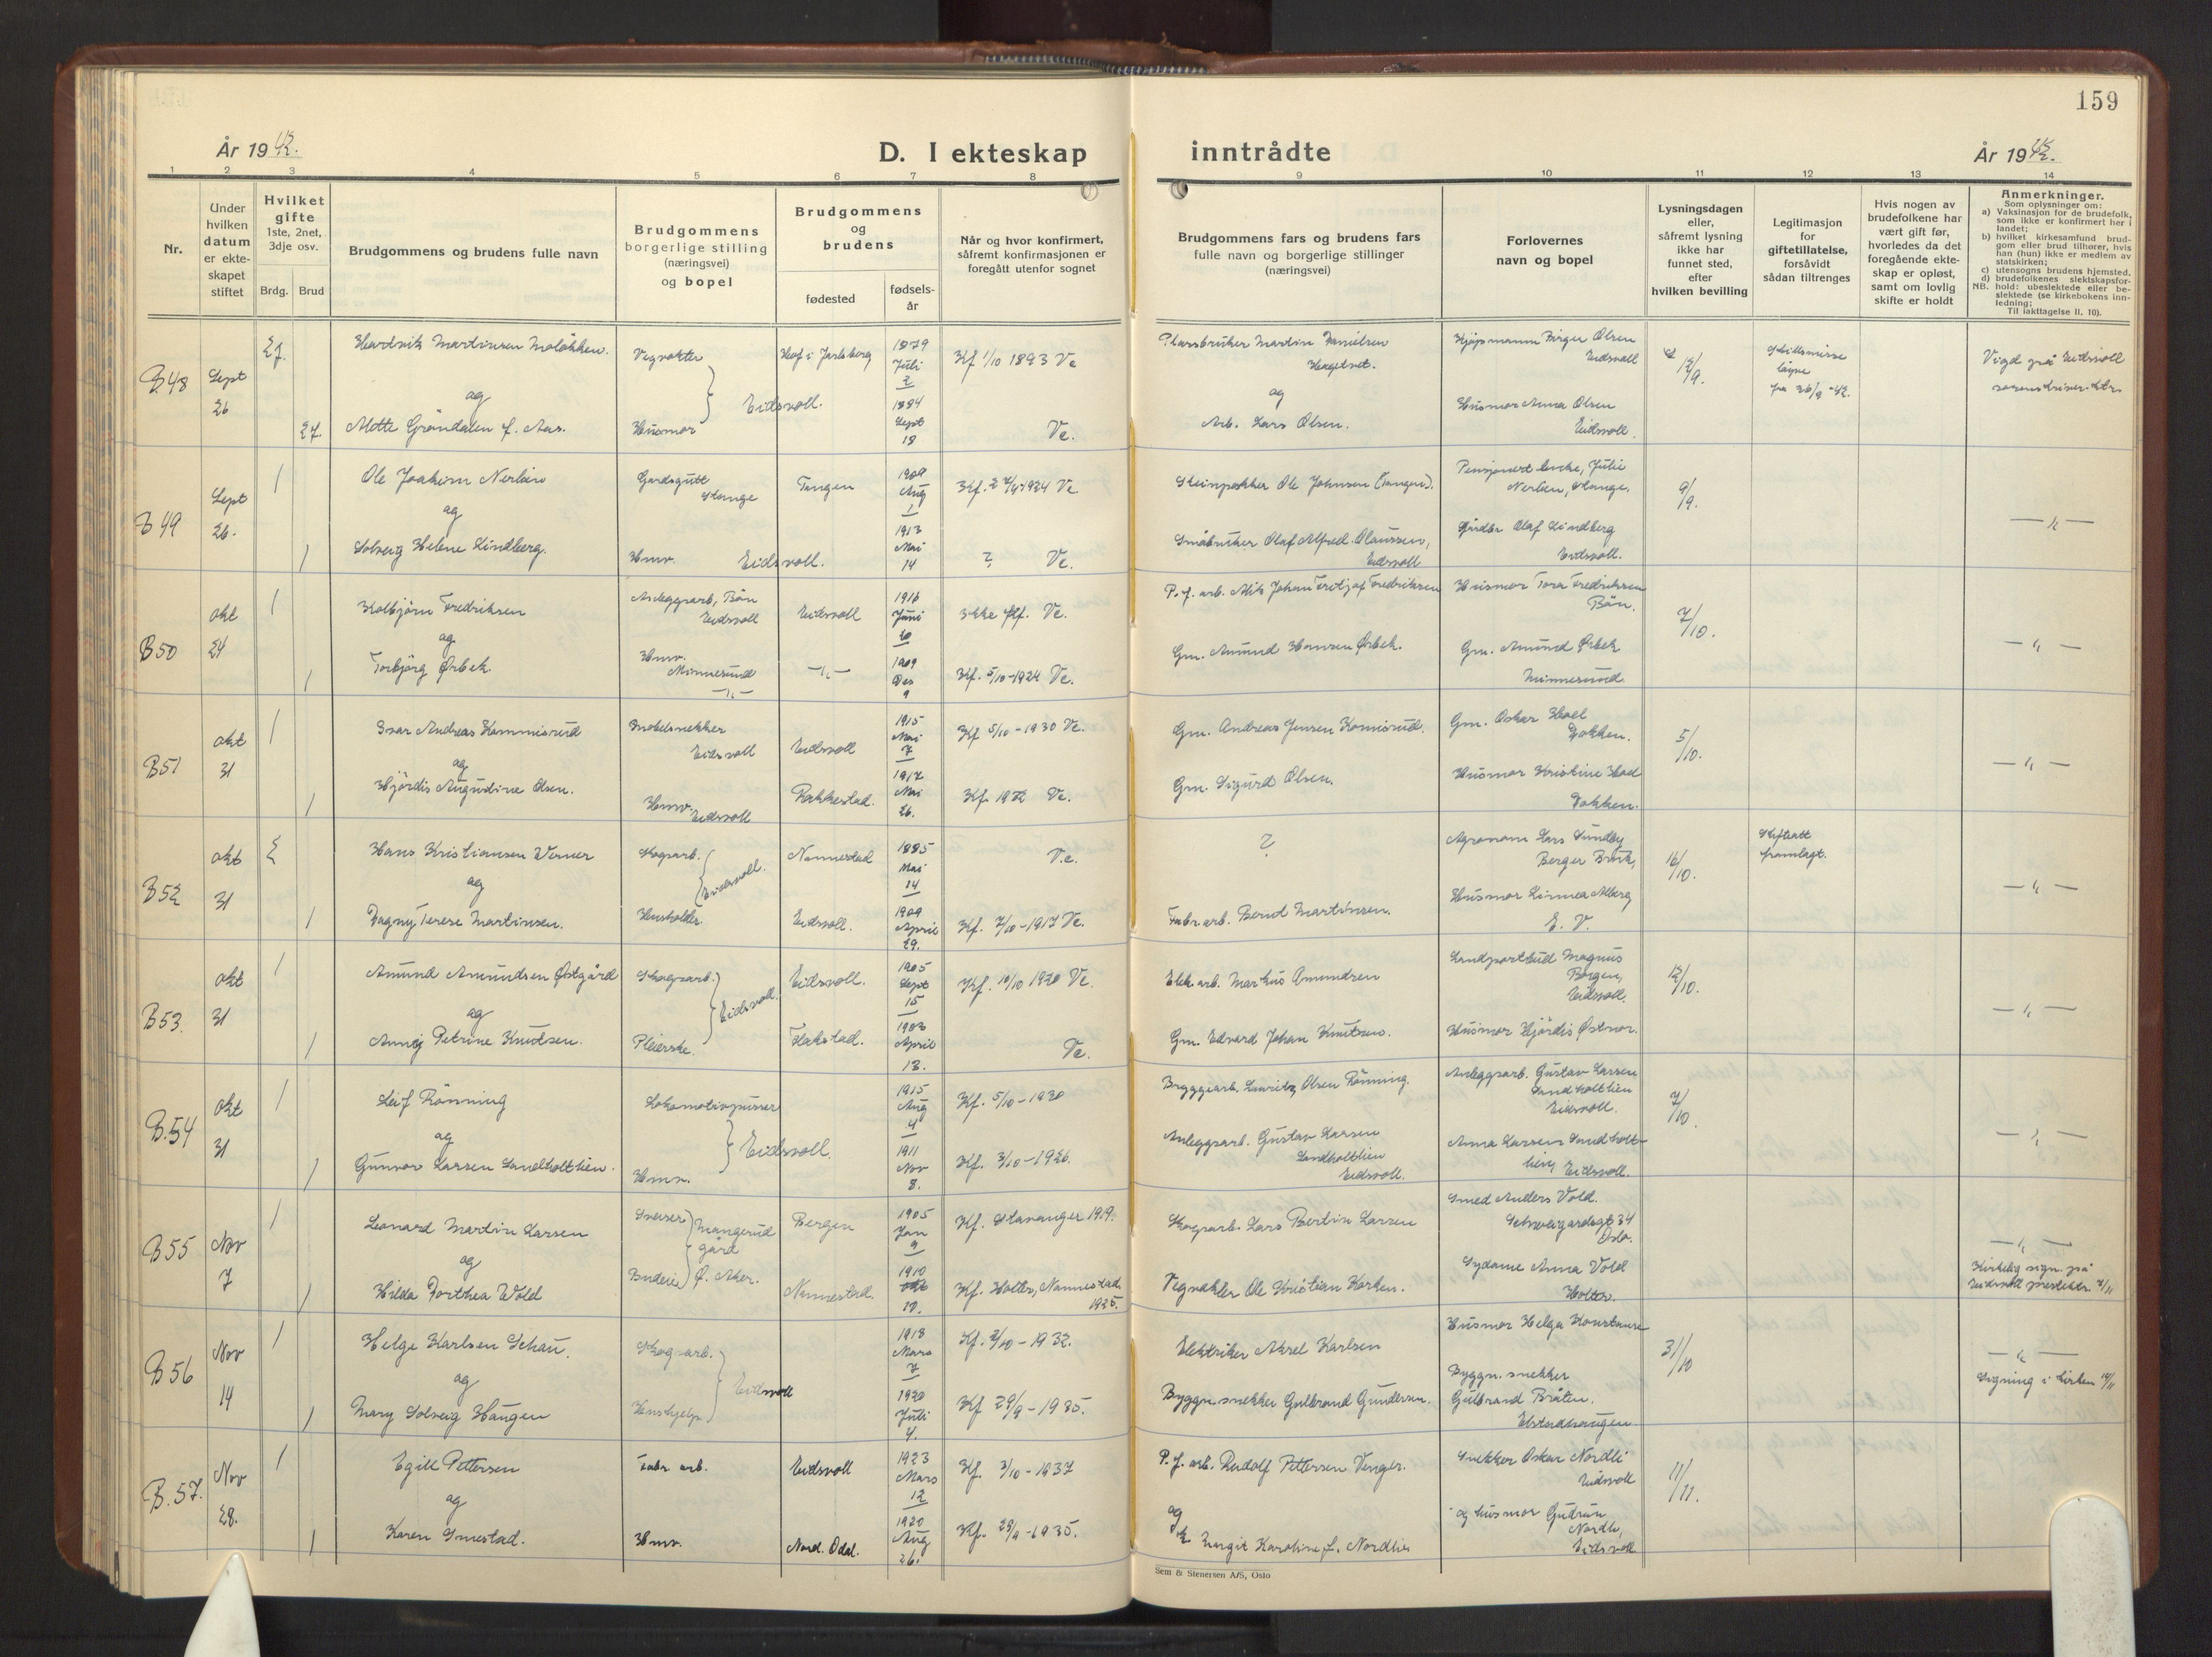 159
År 1942.
D. I ekteskap
inntrådte
År 1942.
1 2 3 4 5 6 7 8 9 10 11 12 13 14
Nr.
Under
hvilken
datum
er ekte-
skapet
stiftet
Hvilket
gifte
1ste, 2net,
3dje osv.
Brdg. Brud
Brudgommens og brudens fulle navn
Brudgommens
borgerlige stilling
(næringsvei)
og bopel
Brudgommens
og
brudens
fødested
fødsels-
år
Når og hvor konfirmert,
såfremt konfirmasjonen er
foregått utenfor sognet
Brudgommens fars og brudens fars
fulle navn og borgerlige stillinger
(næringsvei)
Forlovernes
navn og bopel
Lysningsdagen
eller,
såfremt lysning
ikke har
funnet sted,
efter
hvilken bevilling
Legitimasjon
for
giftetillatelse,
forsåvidt
sådan tiltrenges
Hvis nogen av
brudefolkene har
vært gift før,
hvorledes da det
foregående ekte-
skap er opløst,
samt om lovlig
skifte er holdt
Anmerkninger.
Som oplysninger om:
a) Vaksinasjon for de brudefolk,
som ikke er konfirmert her i
landet;
b) hvilket kirkesamfund brud-
gom eller brud tilhører, hvis
han (hun) ikke er medlem av
statskirken;
c) utensogns brudens hjemsted.
d) brudefolkenes slektskapsfor-
NB. hold: ubeslektede eller be-
slektede (se kirkebokens inn-
ledning;
Til iakttagelse II. 10).
B48
Sept
26
Hartvik Martinsen Moløkken.
og
Mette Grøndalen f. Aas.
Vegvokter
Husmor
Eidsvoll.
Hof i Jarlsberg
1879
Juli
2
1884
Sept
18
Kf 1/10 1893 Ve
Ve.
Plassbruker Martin Danielsen
og
Arb. Lars Olsen.
Kjøpmann Birger Olsen
Eidsvoll
Husmor Anna Olsen
Eidsvoll.
12/9.
Vigd på Eidsvoll
B49
Sept
26.
1
1
Ole Joakim Nerlien
og
Solveig Helene Lindberg.
Gardsgutt
Stange
Hmv.
Tangen
Eidsvoll.
1909
Aug
1
1913
Mai
14
? Ve.
Steinpukker Ole Johnsen (Tangen).
Småbruker Olaf Alfred Olaussen,
Eidsvoll
Pensjonert enke, Julie
Nerlien, Stange.
Gårdbr Olaf Lindberg
Eidsvoll.
9/9.
— " —
B50
okt
24
1
1
Kolbjørn Fredriksen
og
Torbjørg Ørbek.
Anleggsarb, Bøn
Eidsvoll
Hmv.
Minnesund
— " —
Eidsvoll
— " —
1916
Juni
20
1909
Des
9
Ikke Kf. Ve.
Kf. 5/10-1924 Ve.
P.f. arb. Nils Johan Fritjof Fredriksen
Gm. Amund Hansen Ørbek.
Husmor Tora Fredriksen
Bøn.
Gm. Amund Ørbek
Minnesund.
7/10.
— " —
B51
okt
31
1
1
Ivar Andreas Kommisrud
og
Hjørdis Augustine Olsen.
Møbelsnekker
Eidsvoll
Hmv.
Eidsvoll
Eidsvoll
Rakkestad.
1915
Mai
7
1917
Mai
26.
Kf 5/10-1930 Ve.
Kf. 1932 Ve.
Gm. Andreas Jensen Komisrud.
Gm. Sigurd Olsen.
Gm. Oskar Hoel
Dokken.
Husmor Kristine Hoel
Dokken.
5/10.
— " —
B52
okt
31
2
1
Hans Kristiansen Werner
og
Dagny Terese Martinsen.
Skogsarb.
Husholder.
Eidsvoll.
Nannestad
Eidsvoll.
1885
Mai
14
1909
April
29.
Ve.
Kf. 7/10-1917 Ve.
?
Fabr arb. Bernt Martinsen.
Agronom Lars Sundby
Berger Bruk,
Husmor Linnea Alberg
E. V.
16/10.
Skifteatt
framlagt.
— " —
B53.
okt
31
1
1
Amund Amundsen Østgård
og
Anny Petrine Knudsen.
Skogsarb.
Pleierske.
Eidsvoll.
Eidsvoll.
Flakstad.
1905
Sept
15
1903
April
13.
Kf. 10/10 1920 Ve.
Ve.
Elek. arb. Markus Amundsen
Gm. Edvard Johan Knutsen.
Landpostbud Magnus
Borgen,
Eidsvoll.
Husmor Hjørdis Østnor.
12/10.
— " —
B.54
okt
31
1
1
Leif Rønning
og
Gunvor Larsen Sandholtlien.
Lokomotivpusser
Hmv.
Eidsvoll.
1915
Aug
4
1911
Nov
8.
Kf. 5/10-1930
Kf. 3/10-1926.
Bryggearb. Lauritz Olsen Rønning.
Anleggsarb. Gustav Larsen
Sandholtlien
Eidsvoll.
Anleggsarb. Gustav Larsen
Sandholtlien
Eidsvoll.
Anna Larsen Sandholt-
lien, Eidsvoll.
7/10.
— " —
B55
Nov
7
1
1
Leonard Martin Larsen
og
Hilda Dorthea Wold
Sveiser
Budeie
Mangerud
gård
Ø. Aker.
Bergen
Nannestad.
1905
Jan
9
1910
okt
10.
Kf. Stavanger 1919.
Kf. Holter, Nannestad
1925.
Skogsarb. Lars Bertin Larsen
Vegvokter Ole Kristian Korken.
Smed Anders Vold.
Schweigårdsgt 34
Oslo.
Sydame Anna Vold
Holter.
— " —
Kirkelig sign. på
Eidsvoll prestektr. 7/11
B56
Nov
14
1
1
Helge Karlsen Schau.
og
Mary Solveig Haugen
Skogsarb.
Hushjelp.
Eidsvoll
1913
Mars
7
1920
Juli
4.
Kf. 2/10-1932.
Kf 29/9-1935.
Elektriker Aksel Karlsen
Byggn. snekker Gulbrand Gundersen.
Husmor Helga Konstanse
Byggn. snekker
Gulbrand Bråten.
Elstadhaugen
31/10
— " —
Signing i kirken 14/11
B.57.
Nov
28.
1
1
Egill Pettersen
og
Karen Smestad.
Fabr arb.
Hmv.
Eidsvoll
Nord. Odal.
1923
Mars
12
1920
Aug
26.
Kf. 3/10-1937
Kf. 29/9-1935.
P.f. arb. Rudolf Pettersen Venger.
og
Snekker Oskar Nordli
Eidsvoll
og husmor Gudrun
Nordli,
Eidsvoll
11/11.
Sem & Stenersen A/S, Oslo